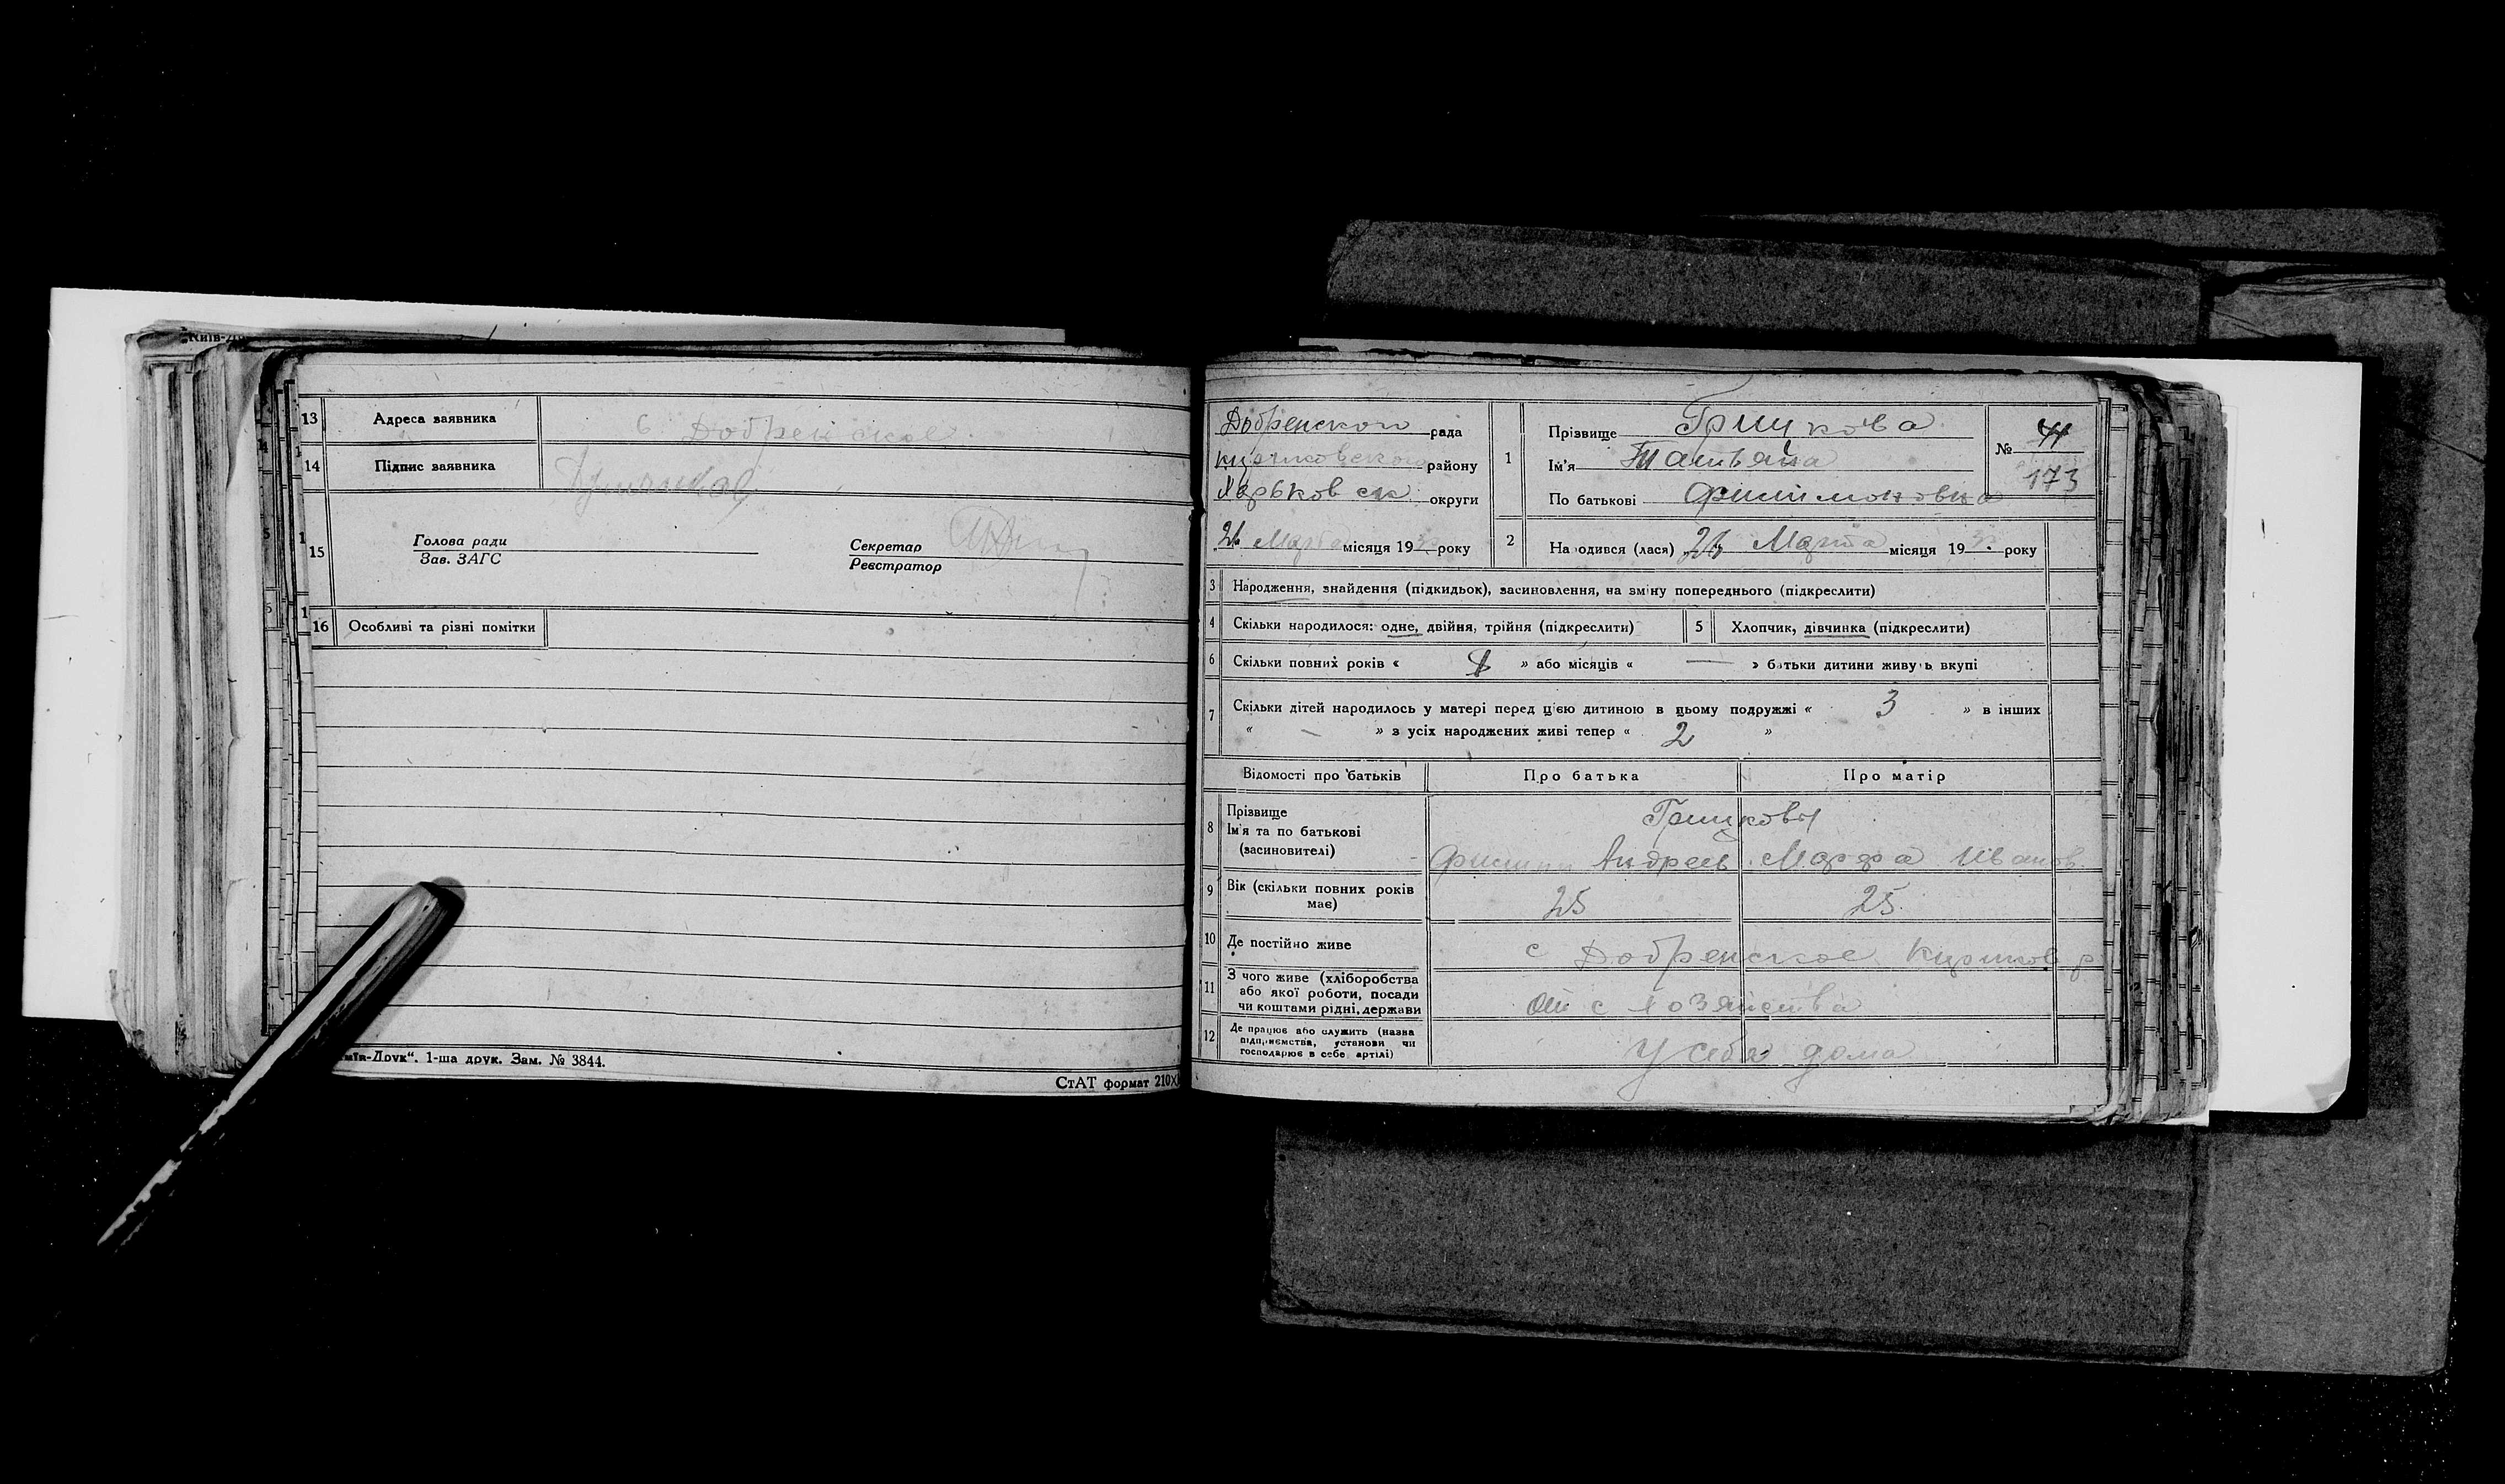 13 Адреса заявника с. Добренское
14 Підпис заявника
15 Голова ради
Зав. ЗАГС
Секретар
Реєстратор
16 Особливі та різні помітки
Друк“. 1-ша друк. Зам. № 3844.
СтАТ формат 210×
Добренской рада
району
Харьковск округи
місяця 19 року
1 Прізвище Грицкова
Ім'я Татьяна
По батькові Филимоновна
№ 41
173
2 Народився (лася) Марта місяця 19 року
3 Народження, знайдення (підкидьок), засиновлення, на зміну попереднього (підкреслити)
4 Скільки народилося: одне, двійня, трійня (підкреслити) 5 Хлопчик, дівчинка (підкреслити)
6 Скільки повних років « » або місяців « — » батьки дитини живуть вкупі
7 Скільки дітей народилось у матері перед цією дитиною в цьому подружжі « 3 » в інших
« — » з усіх народжених живі тепер « 2 »
Відомості про батьків Про батька Про матір
8 Прізвище
Ім'я та по батькові
(засиновителі)
Грицковы
Андреев Марфа Иванов.
9 Вік (скільки повних років має) 25 25.
10 Де постійно живе с Добренское
11 З чого живе (хліборобства
або якої роботи, посади
чи коштами рідні, держави
от с хозяйства
12 Де працює або служить (назва
підприємства, установи чи
господарює в себе, артілі)
У себя дома